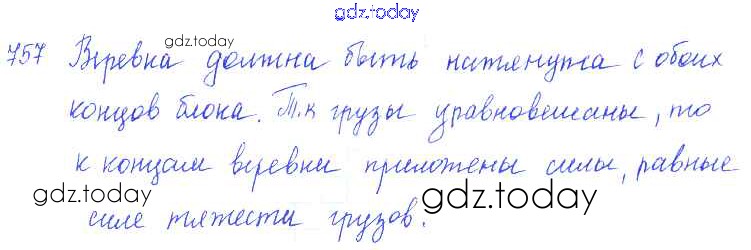 gdz.today
757 Веревка должна быть натянута с обоих
gdz.today
концов блока. Т.к грузы уравновешаны, то
к концам веревки приложены силы, равные
gdz.today
gdz.today
силе тяжести грузов.